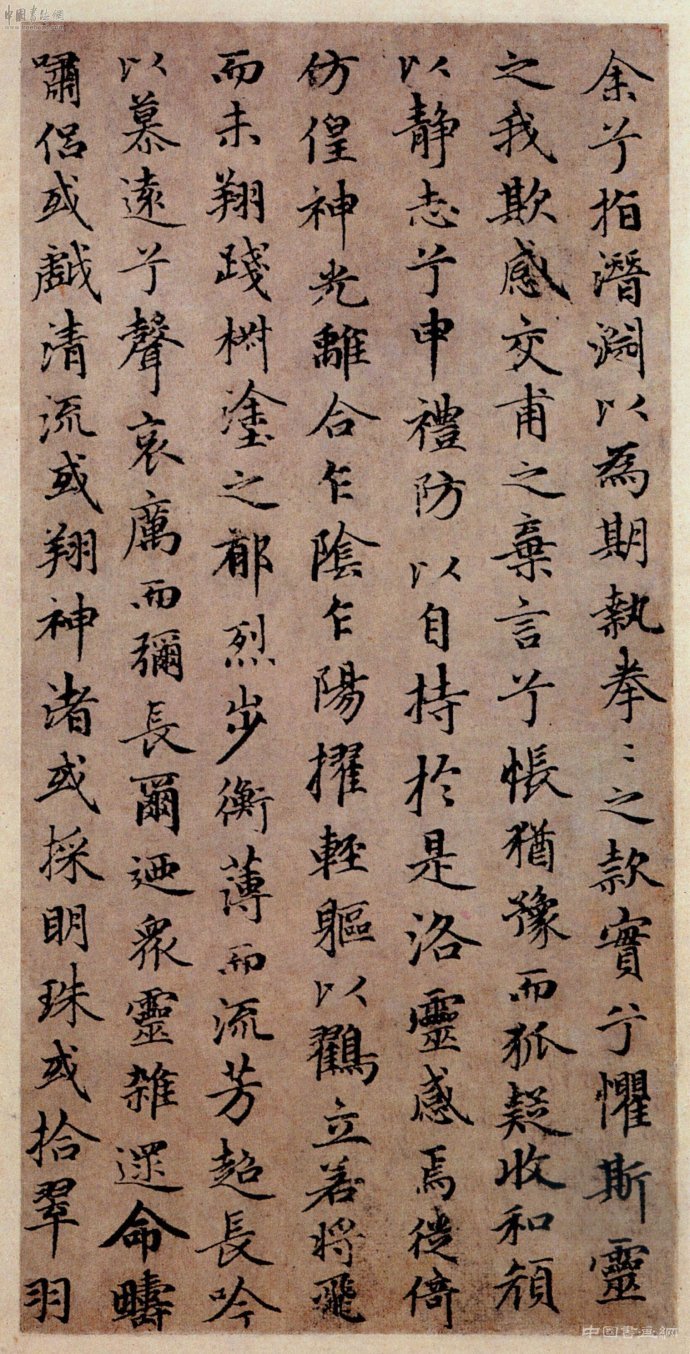 余兮指潛淵以為期執拳〻之款實兮懼斯靈
之我欺感交甫之棄言兮悵猶豫而狐疑收和顏
以靜志兮申禮防以自持於是洛靈感焉徙倚
仿偟神光離合乍陰乍陽擢輕軀以鶴立若將飛
而未翔踐椒塗之郁烈步衡薄而流芳超長吟
以慕遠兮聲哀厲而彌長爾迺衆靈雜遝命疇
嘯侶或戲清流或翔神渚或採明珠或拾翠羽
中國書法網
中国書画網